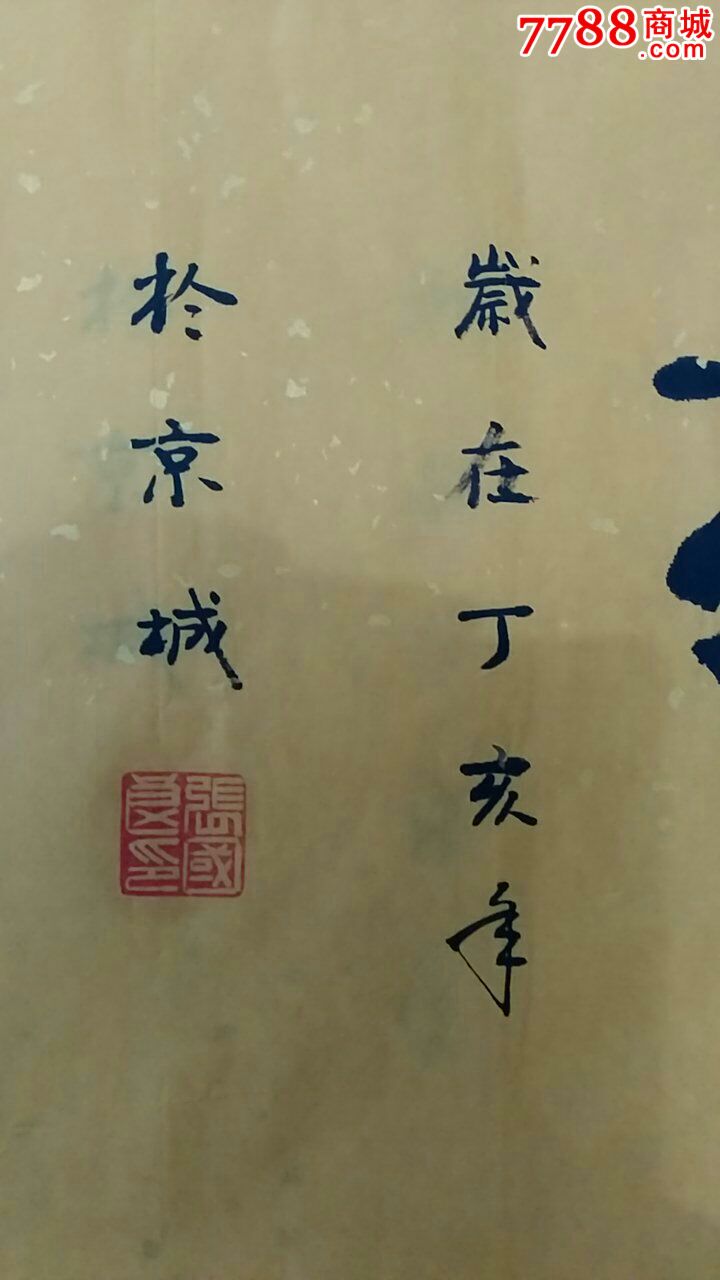 7788商城
.com
歲在丁亥年
於京城